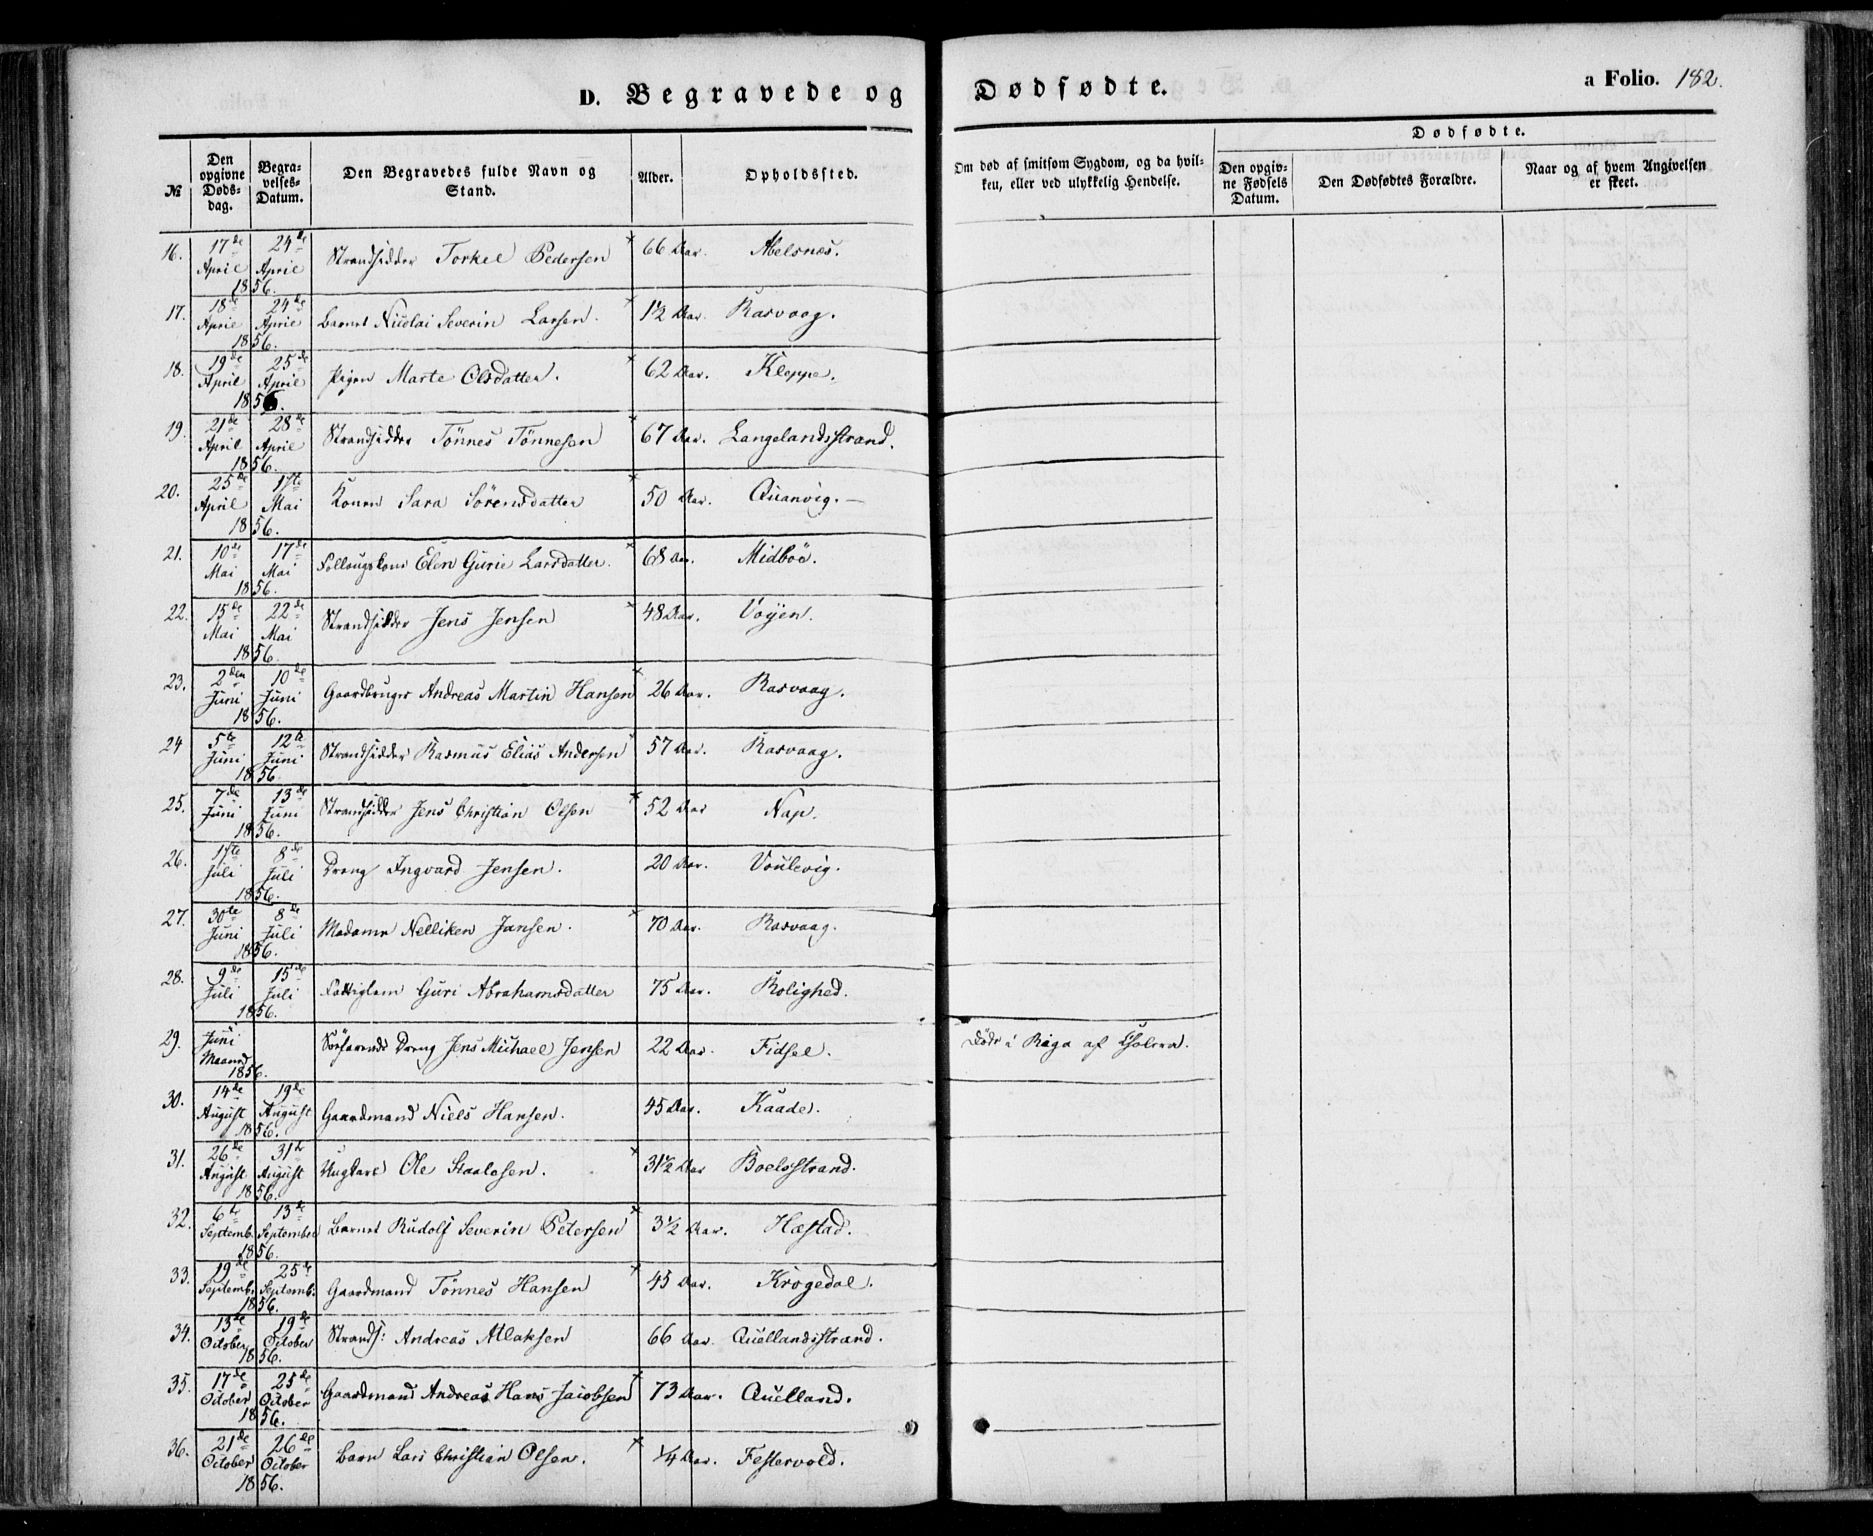 D. Begravede og Dødfødte. a Folio. 182.
№ Den opgivne Døds-dag. Begra-velses-Datum. Den Begravedes fulde Navn og Stand. Alder. Opholdssted. Om død af smitsom Sygdom, og da hvil-ken, eller ved ulykkelig Hendelse. Dødfødte. Den opgiv-ne Fødsels Datum. Den Dødfødtes Forældre. Naar og af hvem Angivelsen er skeet.
16. 17de April 24de April 1856. Strandsidder Torkel Pedersen 66 Aar. Abelsnes.
17. 18de April 24de April 1856. Barnet Nicolai Severin Larsen. 1½ Aar. Rasvaag.
18. 19de April 25de April 1856. Pigen Marte Olsdatter. 62 Aar. Kleppe.
19. 21de April 28de April 1856. Strandsidder Tönnes Tönnesen 67 Aar. Langelandsstrand.
20. 25de April 1ste Mai 1856. Konen Sara Sörensdatter 50 Aar. Quanvig.
21. 10de Mai 17de Mai 1856. Follaugskone Elen Gurie Larsdatter. 68 Aar. Midböe.
22. 15de Mai 22de Mai 1856. Strandsidder Jens Jensen 48 Aar. Vøijen.
23. 2den Juni 10de Juni 1856. Gaardbruger Andreas Martin Hansen 26 Aar. Rasvaag.
24 5te Juni 12te Juni 1856. Strandsidder Rasmus Elias Andersen 57 Aar. Rasvaag.
25. 7de Juni 13de Juni 1856. Strandsidder Jens Christian Olsen 52 Aar Nap.
26. 1ste Juli 8de Juli 1856. Dreng Ingvard Jensen. 20 Aar.
27. 30te Juni 8de Juli 1856. Madame Nelliken Jansen. 70 Aar. Rasvaag.
28. 9de Juli 15de Juli 1856. Fattiglem Guri Abrahamsdatter 75 Aar. Rolighed.
29. Juni Maaned 1856. Söefarende Dreng Jens Michael Jensen 22 Aar. Fidsel. Döde i Riga af Cholera.
30. 14de August 19de August 1856. Gaardmand Niels Hansen. 45 Aar. Kaade.
31. 26de August 31te August 1856. Ungkarl Ole Staalesen. 31½ Aar Boelsstrand.
32. 6te Septemb. 13de September 1856. Barnet Rudolf Severin Petersen 3½ Aar. Hæstad.
33. 19de Septemb. 25de Septemb. 1856. Gaardmand Tönnes Hansen 45 Aar. Krogedal.
34. 13de October 19de October 1856. Strands: Andreas Atlaksen 66 Aar. Quellandsstrand.
35. 17de October 25de October 1856. Gaardmand Andreas Hans Jacobsen 73 Aar. Quelland.
36. 21de October 26de October 1856. Barn Lars Christian Olsen. ¼ Aar. Festervold.